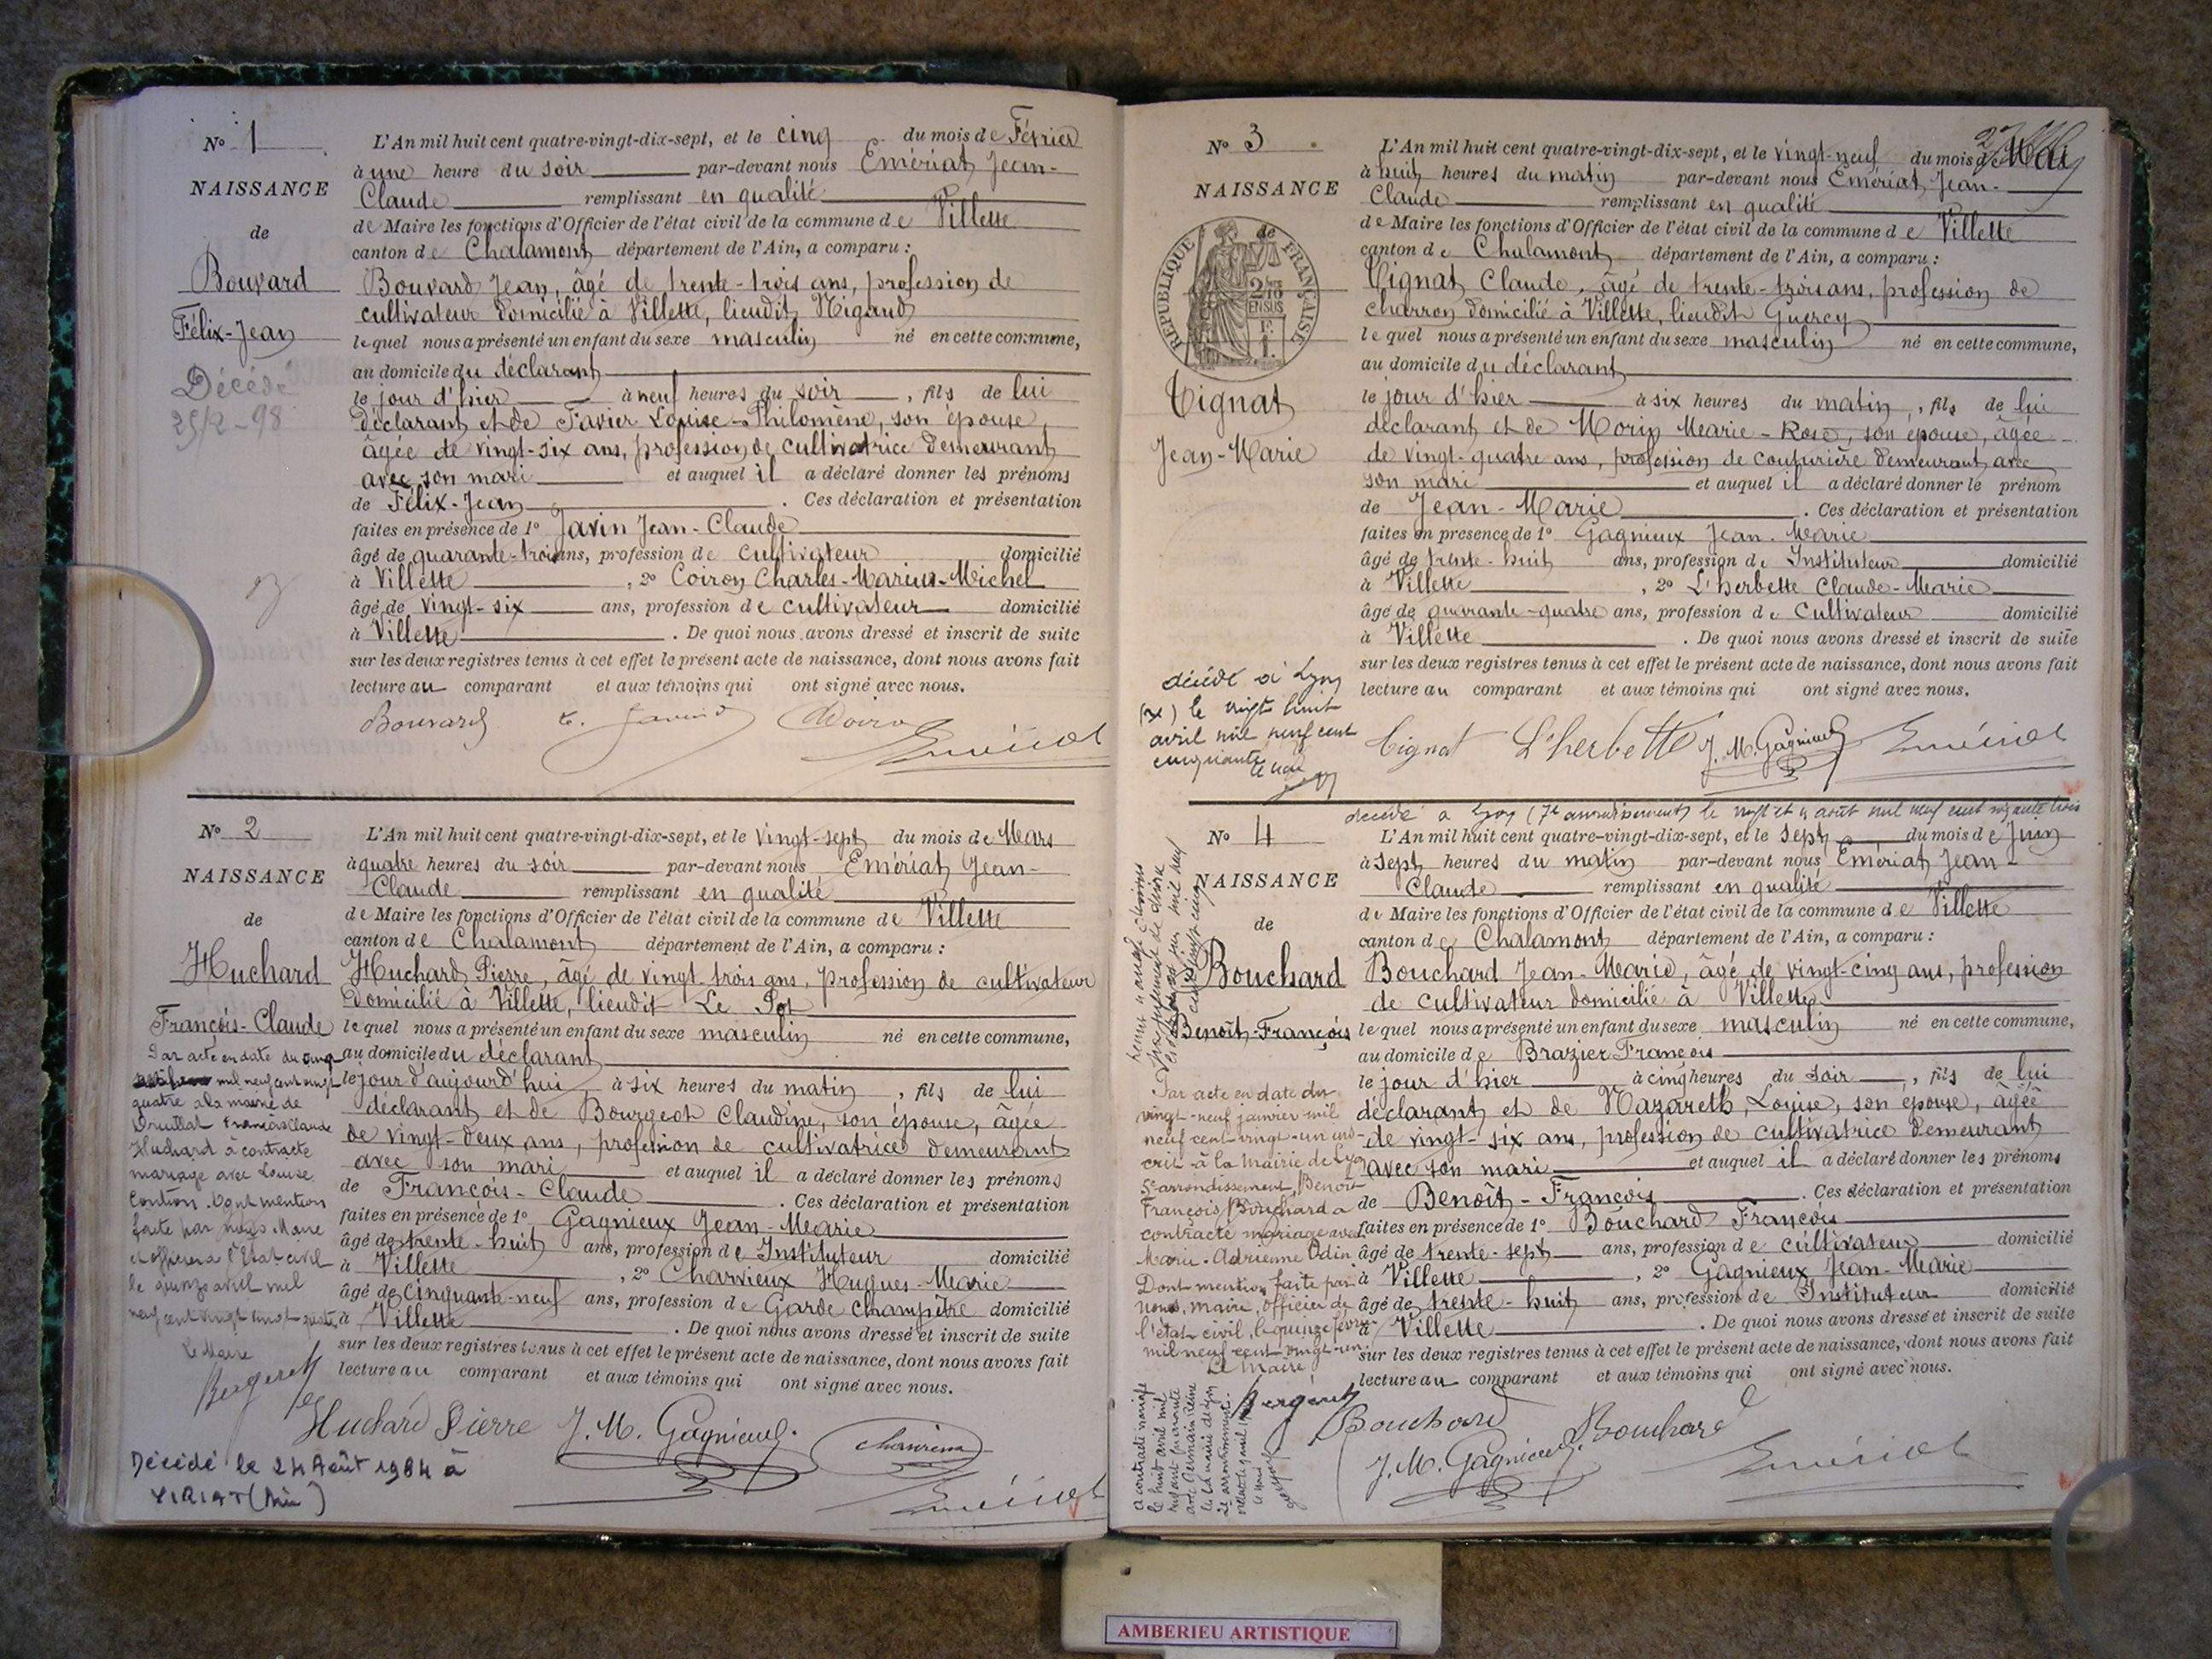 N° 1
NAISSANCE
de
Bouvard
Félix-Jean
Décédé
L'An mil huit cent quatre-vingt-dix-sept, et le cinq du mois de Février
à une heure du soir par-devant nous Emériat Jean-
Claude remplissant en qualité
de Maire les fonctions d'Officier de l'état civil de la commune de Villette
canton de Chalamont département de l'Ain, a comparu :
Bouvard Jean, âgé de trente-trois ans, profession de
cultivateur domicilié à Villette, lieudit Nigaud
lequel nous a présenté un enfant du sexe masculin né en cette commune,
au domicile du déclarant
le jour d'hier à neuf heures du soir, fils de lui
déclarant et de Favier Louise-Philomène, son épouse,
âgée de vingt-six ans, profession de cultivatrice demeurant
avec son mari et auquel il a déclaré donner les prénoms
de Félix-Jean. Ces déclaration et présentation
faites en présence de 1° Javin Jean-Claude
âgé de quarante-trois ans, profession de cultivateur domicilié
à Villette, 2° Coiron Charles-Marius-Michel
âgé de vingt-six ans, profession de cultivateur domicilié
à Villette. De quoi nous avons dressé et inscrit de suite
sur les deux registres tenus à cet effet le présent acte de naissance, dont nous avons fait
lecture au comparant et aux témoins qui ont signé avec nous.
Bouvard
Emériat
N° 2
NAISSANCE
de
Huchard
François-Claude
Par acte en date du cinq
mil neuf cent vingt
quatre à la mairie de
Druillat François Claude
Huchard à contracté
mariage avec Louise
Dont mention
faite par nous Maire
et officier de l'Etat-civil
le quinze avril mil
neuf cent vingt
Le Maire
Décédé le 24 Août 1984 à
VIRIAT (Ain)
L'An mil huit cent quatre-vingt-dix-sept, et le vingt-sept du mois de Mars
à quatre heures du soir par-devant nous Emériat Jean-
Claude remplissant en qualité
de Maire les fonctions d'Officier de l'état civil de la commune de Villette
canton de Chalamont département de l'Ain, a comparu :
Huchard Pierre, âgé de vingt trois ans, profession de cultivateur
domicilié à Villette, lieudit Le
lequel nous a présenté un enfant du sexe masculin né en cette commune,
au domicile du déclarant
le jour d'aujourd'hui à six heures du matin, fils de lui
déclarant et de Bourgeot Claudine, son épouse, âgée
de vingt-deux ans, profession de cultivatrice demeurant
avec son mari et auquel il a déclaré donner les prénoms
de François-Claude. Ces déclaration et présentation
faites en présence de 1° Gagnieux Jean-Marie
âgé de trente-huit ans, profession de Instituteur domicilié
à Villette, 2° Charvieux Hugues-Marie
âgé de cinquante-neuf ans, profession de Garde champêtre domicilié
à Villette. De quoi nous avons dressé et inscrit de suite
sur les deux registres tenus à cet effet le présent acte de naissance, dont nous avons fait
lecture au comparant et aux témoins qui ont signé avec nous.
Huchard Pierre J. M. Gagnieux
Emériat
N° 3
NAISSANCE
de
REPUBLIQUE FRANÇAISE
2/10
EN SUS
Tignat
Jean-Marie
décédé à Lyon
le vingt huit
avril mil neuf cent
cinquante
L'An mil huit cent quatre-vingt-dix-sept, et le vingt-neuf du mois de Mai
à huit heures du matin par-devant nous Emériat Jean-
Claude remplissant en qualité
de Maire les fonctions d'Officier de l'état civil de la commune de Villette
canton de Chalamont département de l'Ain, a comparu :
Tignat Claude, âgé de trente-trois ans, profession de
charron domicilié à Villette, lieudit Guercy
lequel nous a présenté un enfant du sexe masculin né en cette commune,
au domicile du déclarant
le jour d'hier à six heures du matin, fils de lui
déclarant et de Morin Marie-Rose, son épouse, âgée
de vingt-quatre ans, profession de couturière demeurant avec
son mari et auquel il a déclaré donner le prénom
de Jean-Marie. Ces déclaration et présentation
faites en présence de 1° Gagnieux Jean-Marie
âgé de trente-huit ans, profession de Instituteur domicilié
à Villette, 2° L'herbette Claude-Marie
âgé de quarante-quatre ans, profession de Cultivateur domicilié
à Villette. De quoi nous avons dressé et inscrit de suite
sur les deux registres tenus à cet effet le présent acte de naissance, dont nous avons fait
lecture au comparant et aux témoins qui ont signé avec nous.
Tignat L'herbette J. M. Gagnieux Emériat
décédé à Lyon (7e arrondissement) le août mil neuf cent soixante trois
N° 4
NAISSANCE
de
Bouchard
Benoît-François
Par acte en date du
vingt-neuf janvier mil
neuf cent vingt-un ins-
crit à la Mairie de Lyon
5e arrondissement, Benoît
François Bouchard a
contracté mariage avec
Marie-Adrienne Odin
Dont mention faite par
nous, maire, officier de
l'état civil, le quinze
mil neuf cent vingt-un
Le Maire
L'An mil huit cent quatre-vingt-dix-sept, et le sept du mois de Juin
à sept heures du matin par-devant nous Emériat Jean-
Claude remplissant en qualité
de Maire les fonctions d'Officier de l'état civil de la commune de Villette
canton de Chalamont département de l'Ain, a comparu :
Bouchard Jean-Marie, âgé de vingt-cinq ans, profession
de cultivateur domicilié à Villette
lequel nous a présenté un enfant du sexe masculin né en cette commune,
au domicile de Brazier François
le jour d'hier à cinq heures du soir, fils de lui
déclarant et de Nazareth, Louise, son épouse, âgée
de vingt-six ans, profession de cultivatrice demeurant
avec son mari et auquel il a déclaré donner les prénoms
de Benoît-François. Ces déclaration et présentation
faites en présence de 1° Bouchard François
âgé de trente-sept ans, profession de cultivateur domicilié
à Villette, 2° Gagnieux Jean-Marie
âgé de trente-huit ans, profession de Instituteur domicilié
à Villette. De quoi nous avons dressé et inscrit de suite
sur les deux registres tenus à cet effet le présent acte de naissance, dont nous avons fait
lecture au comparant et aux témoins qui ont signé avec nous.
Bouchard
J. M. Gagnieux Bouchard
Emériat
AMBERIEU ARTISTIQUE